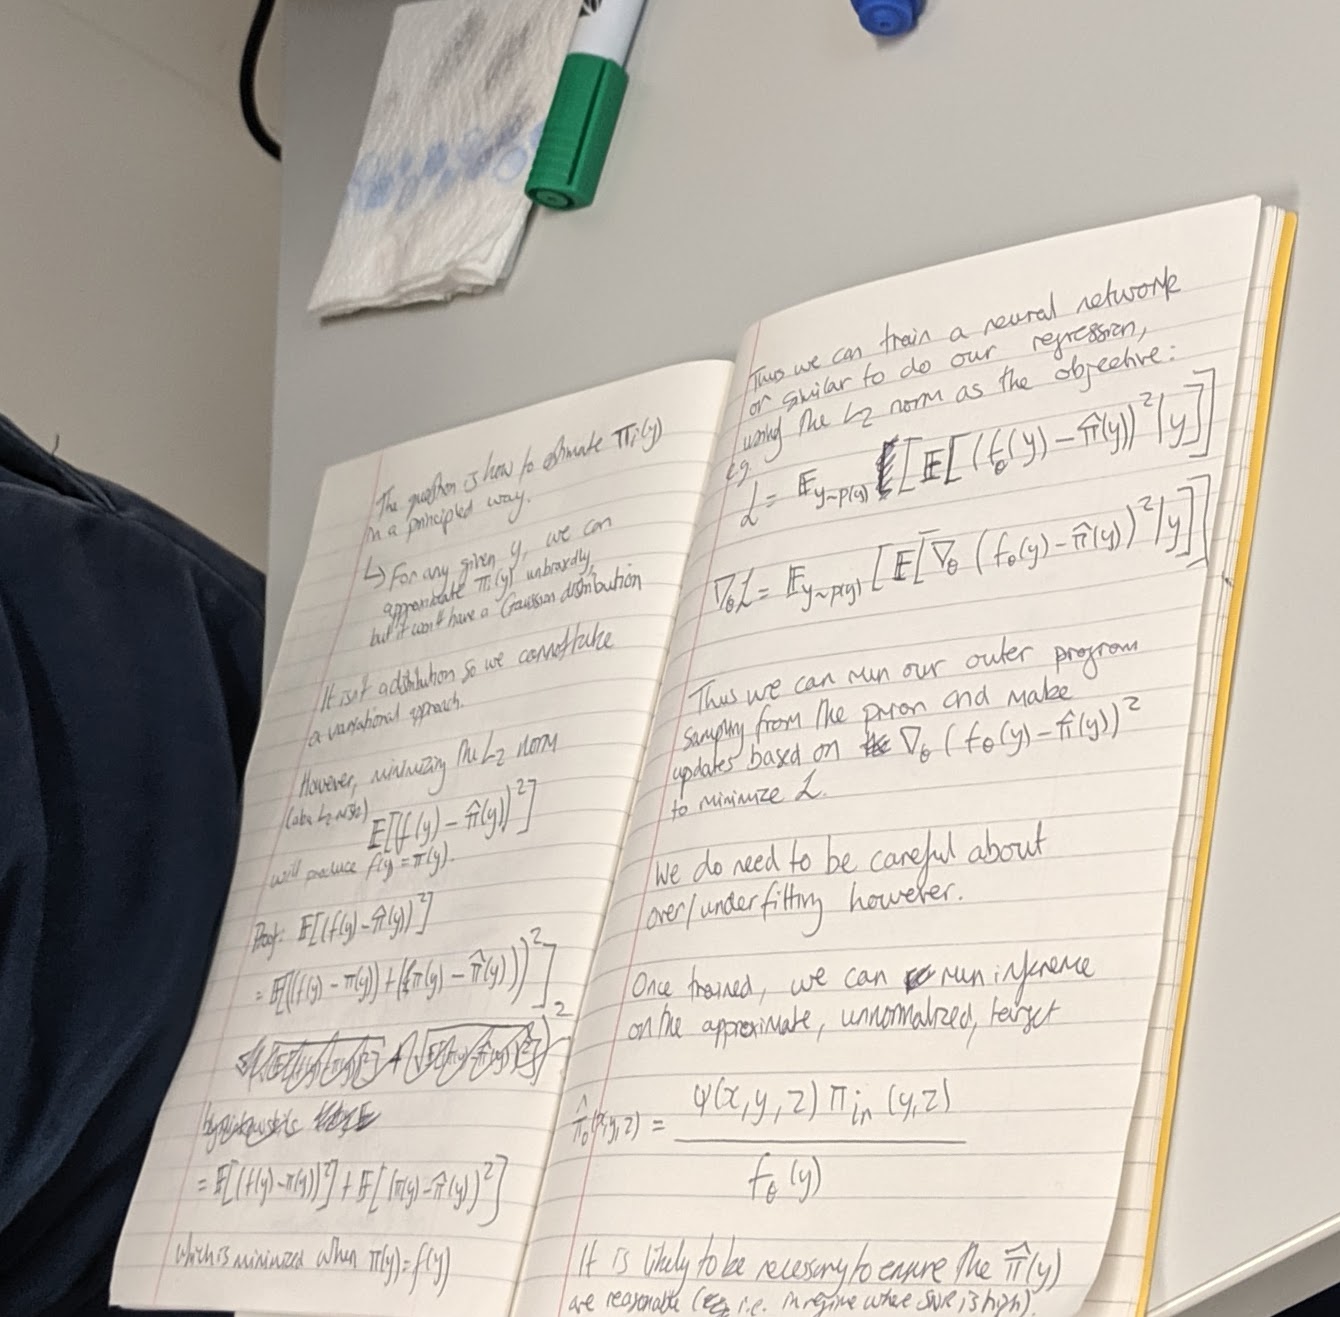 The question is how to estimate πᵢ(y)
in a principled way.
↳ For any given y, we can
approximate πᵢ(y) unbiasedly,
but it won't have a Gaussian distribution
It isn't a distribution so we cannot take
a variational approach.
However, minimizing the L₂ norm
E[(f(y) - π̂(y))²]
will produce f(y) = π(y).
Proof: E[(f(y) - π̂(y))²]
= E[((f(y) - π(y)) + (π(y) - π̂(y)))²]
= E[(f(y) - π(y))²] + E[(π(y) - π̂(y))²]
which is minimized when π(y) = f(y)
Thus we can train a neural network
or similar to do our regression,
using the L₂ norm as the objective:
eg.
L = E_{y~p(y)} [E[(f_θ(y) - π̂(y))²|y]]
∇_θ L = E_{y~p(y)} [E[∇_θ (f_θ(y) - π̂(y))²|y]]
Thus we can run our outer program
sampling from the prior and make
updates based on ∇_θ (f_θ(y) - π̂(y))²
to minimize L.
We do need to be careful about
over/underfitting however.
Once trained, we can run inference
on the approximate, unnormalized, target
π̂_θ(x,y,z) = ψ(x,y,z) π_in(y,z)
f_θ(y)
It is likely to be necessary to ensure the π̂(y)
are reasonable (i.e. in regime where SNR is high).